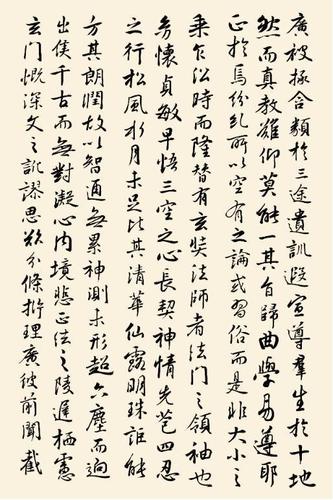 廣被拯含類於三途遺訓遐宣導群生於十地
然而真教難仰莫能一其旨歸曲學易遵耶
正於焉紛糺所以空有之論或習俗而是非大小之
乘乍沿時而隆替有玄奘法師者法門之領袖也
幼懷貞敏早悟三空之心長契神情先苞四忍
之行松風水月未足比其清華仙露明珠詎能
方其朗潤故以智通無累神測未形超六塵而迥
出隻千古而無對凝心內境悲正法之陵遲栖慮
玄門慨深文之訛謬思欲分條析理廣彼前聞截